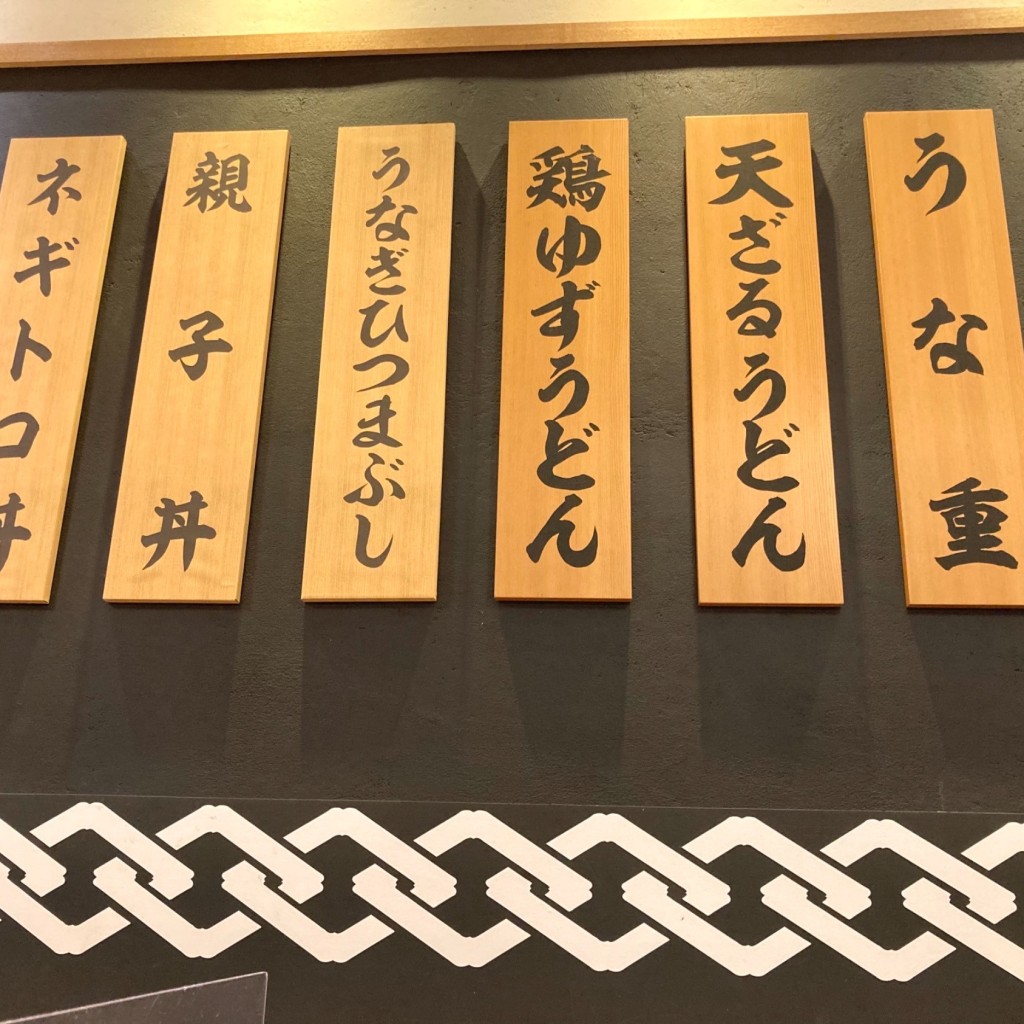 うな重
天ざるうどん
鶏ゆずうどん
うなぎひつまぶし
親子丼
ネギトロ丼